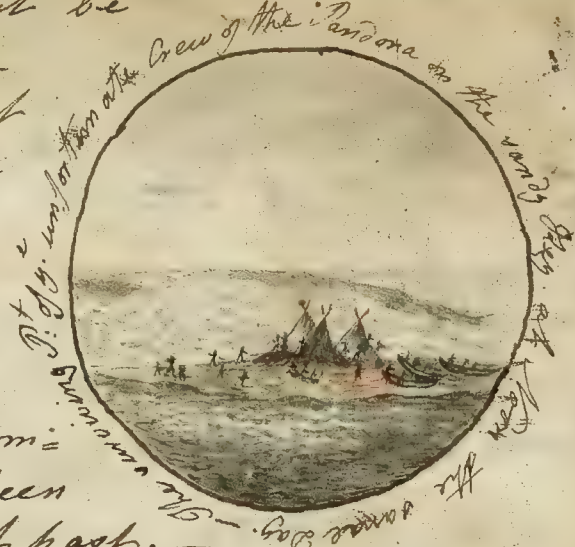 be
The surviving unfortunate Crew of the Pandora on the sandy Key at Noon the same Day.
een
past.